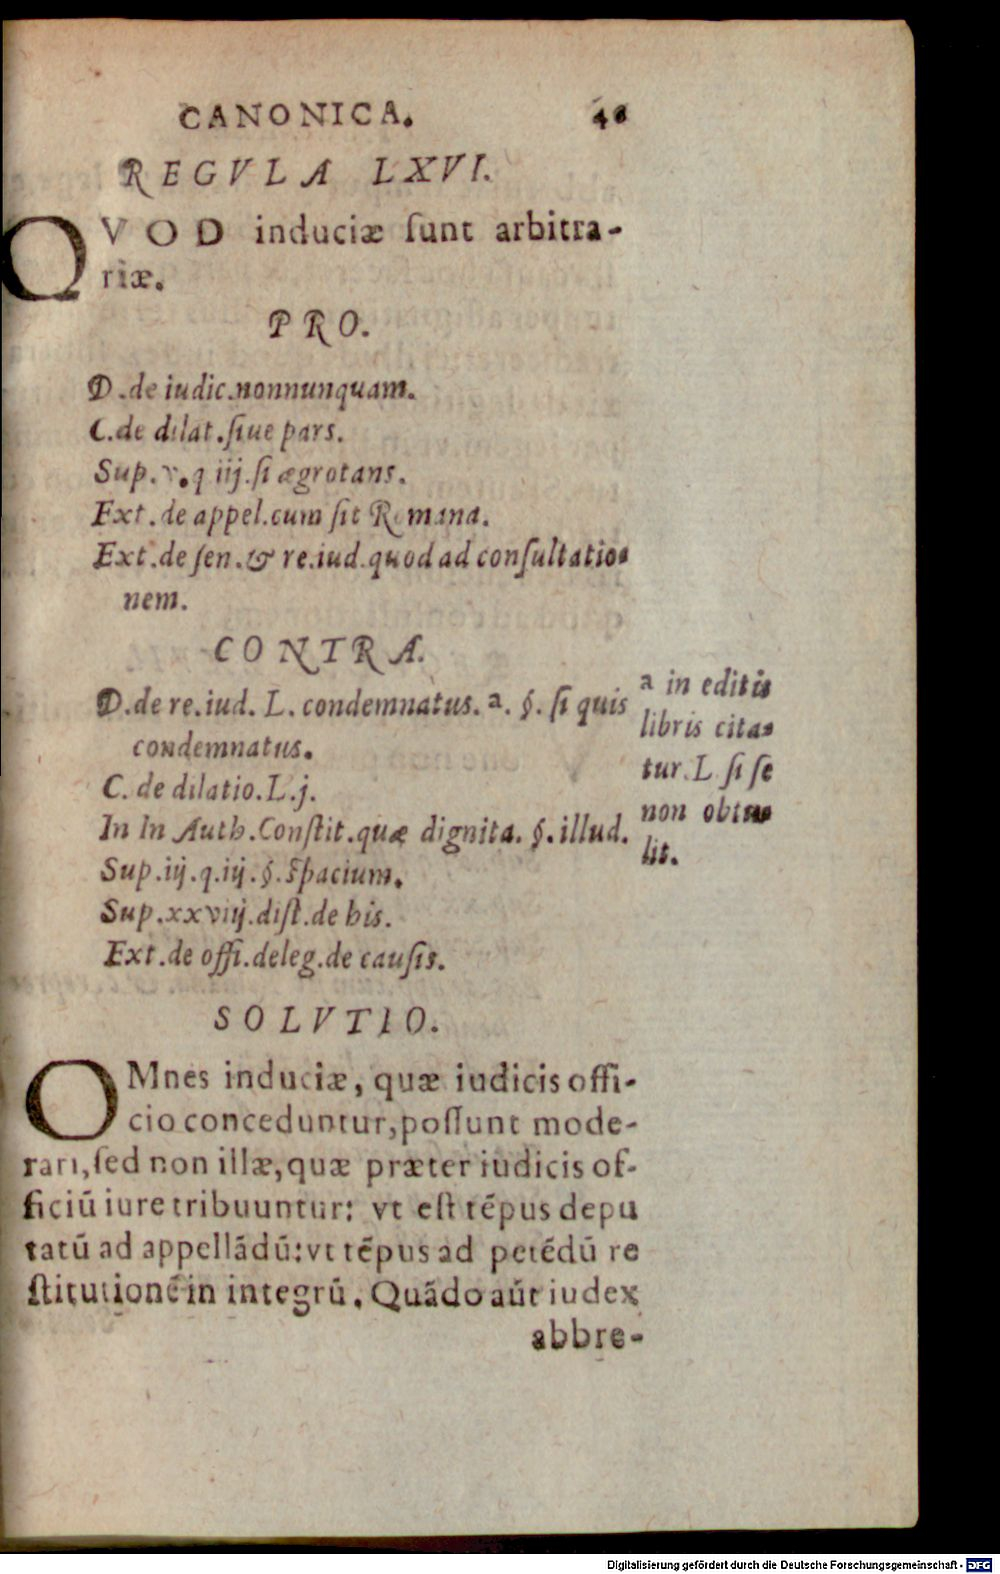 CANONICA.
REGVLA LXVI.
QVOD induciæ ſunt arbitra-
riæ.
PRO.
D.de iudic.nonnunquam.
C.de dilat.ſiue pars.
Sup.v.q iij.ſi ægrotans.
Ext.de appel.cum ſit Romana.
Ext.de ſen.& re.iud.quod ad conſultatio-
nem.
CONTRA.
D.de re.iud. L. condemnatus. a. §. ſi quis
condemnatus.
C. de dilatio.L.j.
In In Auth.Conſtit.quæ dignita. §.illud.
Sup.iij.q.iij.§.Spacium.
Sup.xxviij.diſt.de his.
Ext.de offi.deleg.de cauſis.
a in editis
libris cita-
tur.L ſi ſe
non obtu-
lit.
SOLVTIO.
OMnes induciæ, quæ iudicis offi-
cio conceduntur,poſſunt mode-
rari,ſed non illæ,quæ præter iudicis of-
ficiū iure tribuuntur: vt eſt tēpus depu
tatū ad appellādū:vt tēpus ad petēdū re
ſtitutionē in integrū. Quādo aūt iudex
abbre-
Digitalisierung gefördert durch die Deutsche Forschungsgemeinschaft - DFG